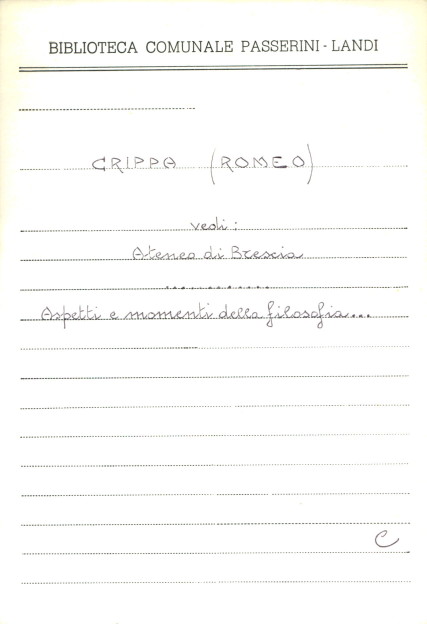 BIBLIOTECA COMUNALE PASSERINI - LANDI
CRIPPA (ROMEO)
vedi:
Ateneo di Brescia
...........
Aspetti e momenti della filosofia...
C